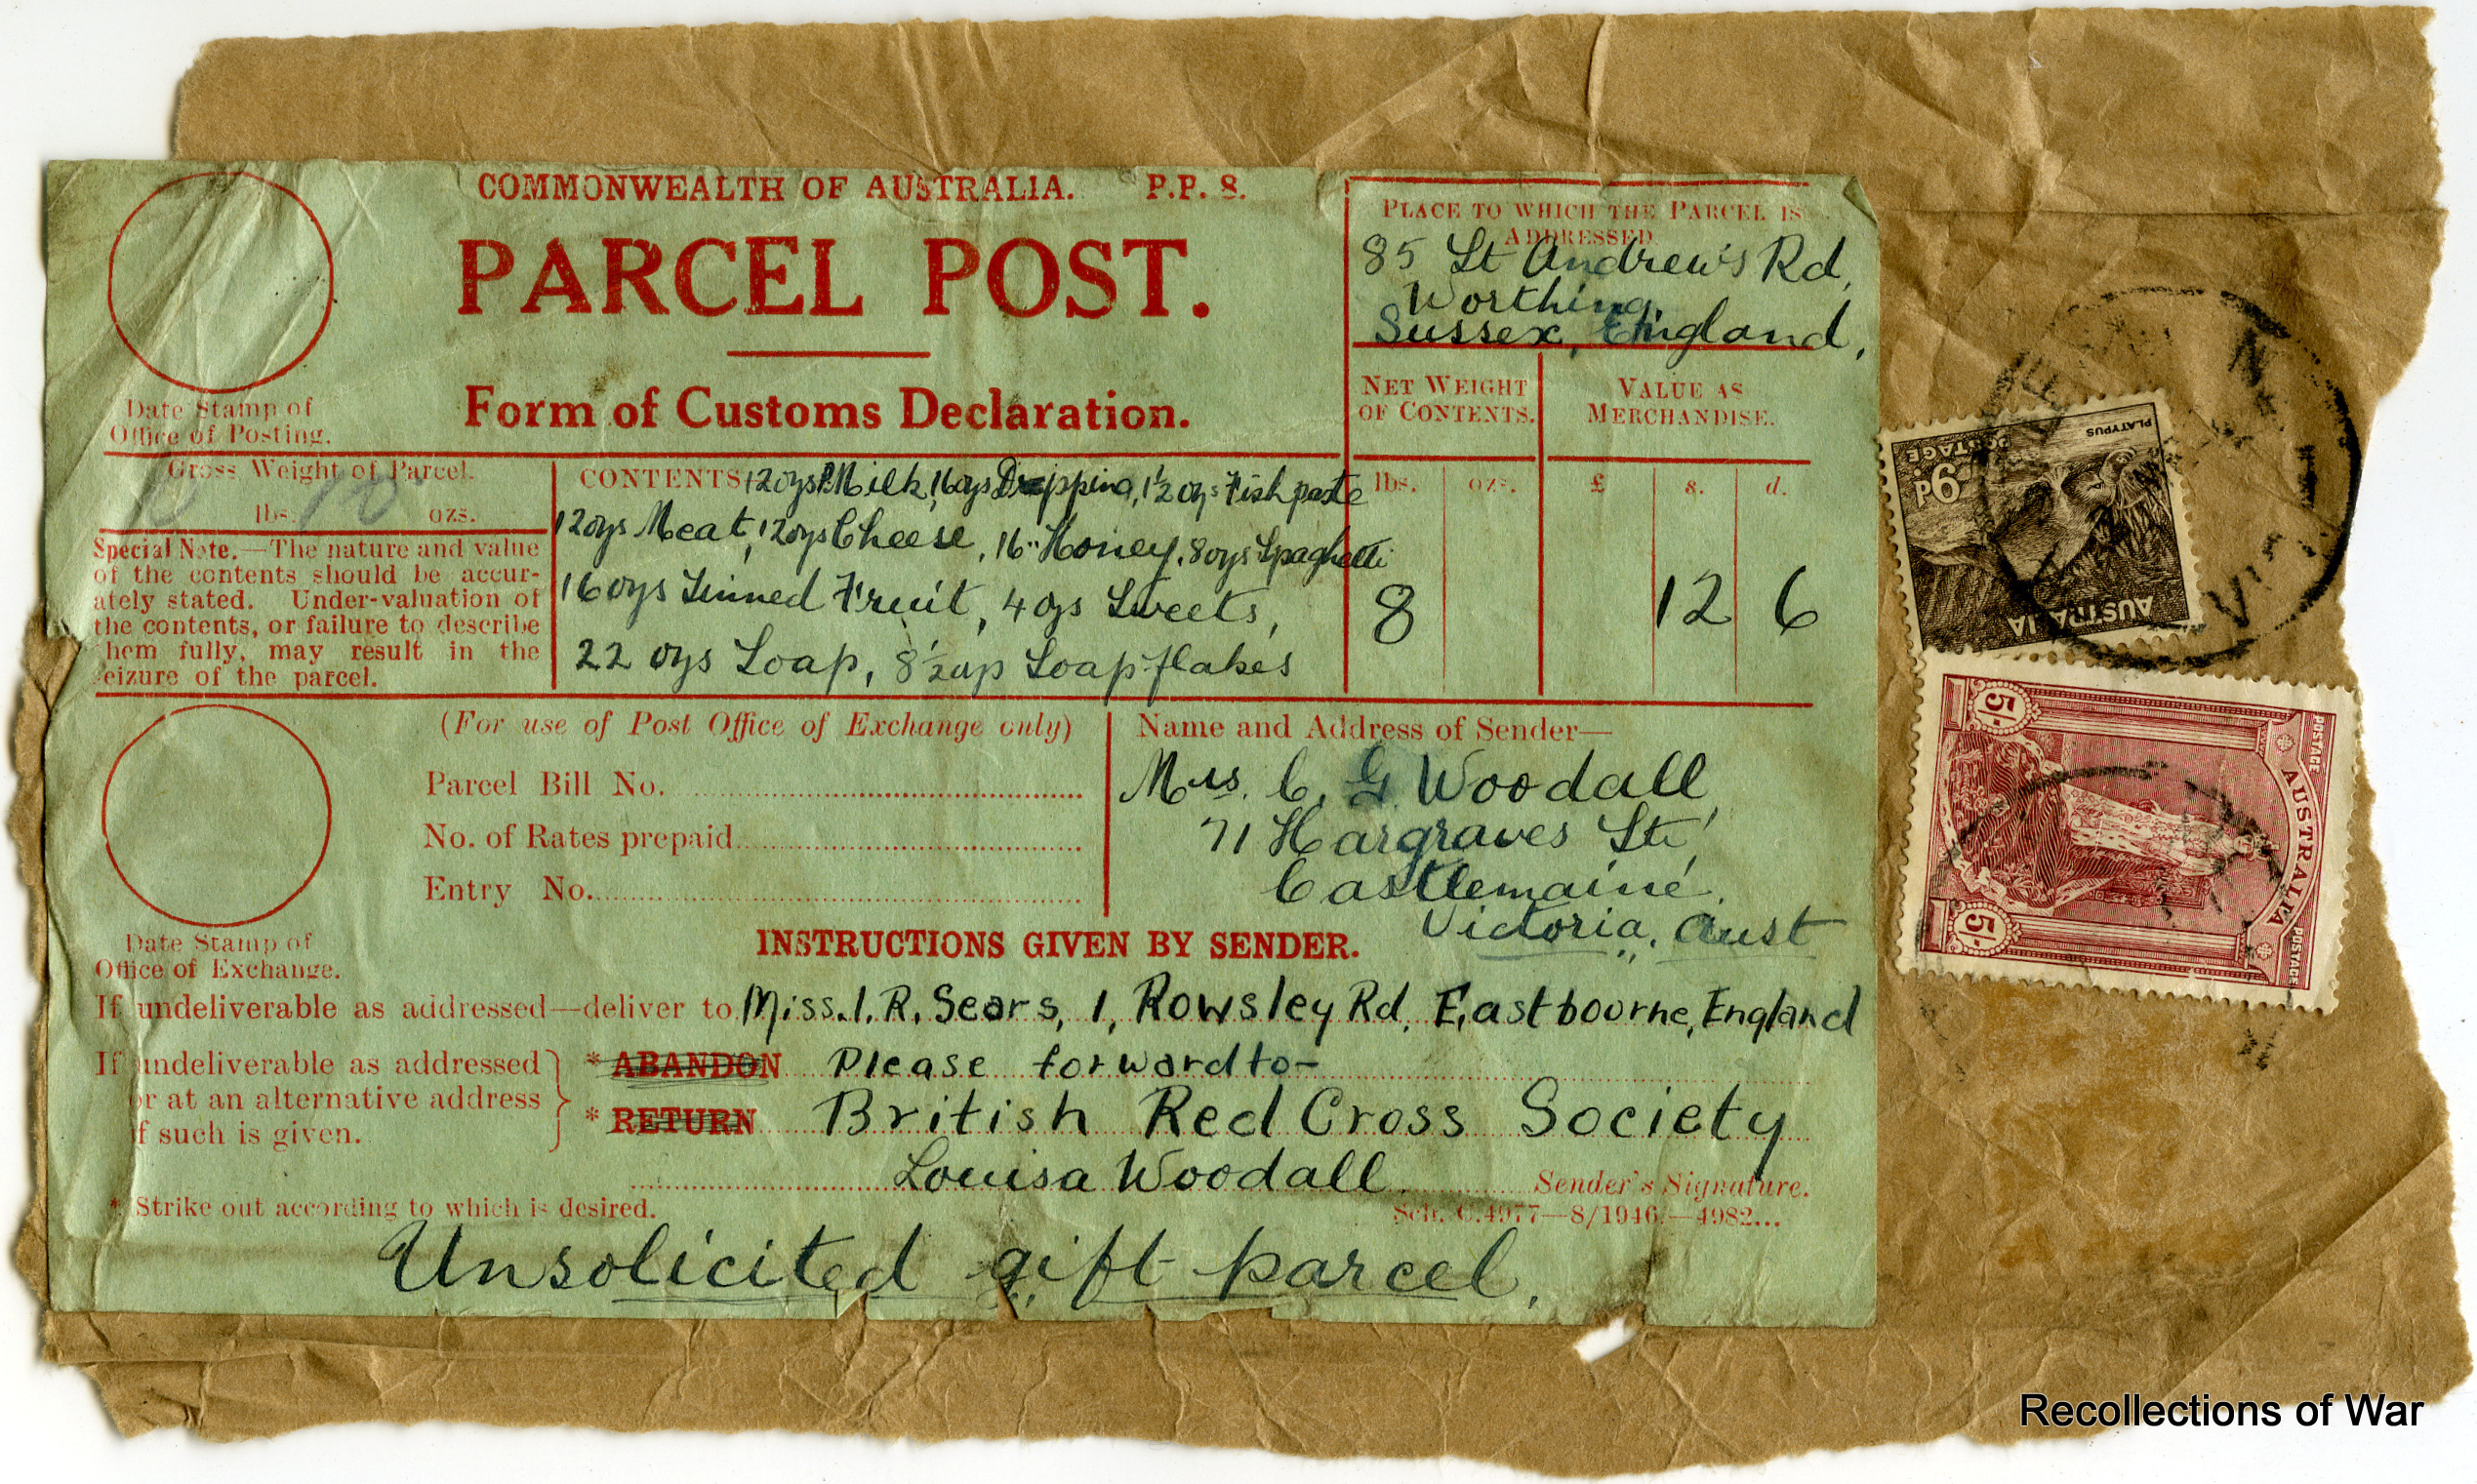 COMMONWEALTH OF AUSTRALIA. P.P. 8.
PARCEL POST.
Form of Customs Declaration.
Date Stamp of
Office of Posting.
PLACE TO WHICH THE PARCEL IS
ADDRESSED
85 St Andrew's Rd,
Worthing,
Sussex, England,
NET WEIGHT
OF CONTENTS.
VALUE AS
MERCHANDISE.
lbs. ozs. £ s. d.
8 12 6
Gross Weight of Parcel.
10
lbs. ozs.
Special Note.—The nature and value
of the contents should be accur-
ately stated. Under-valuation of
the contents, or failure to describe
hem fully, may result in the
eizure of the parcel.
CONTENTS 12ozs P.Milk, 16ozs Dripping, 1½ ozs Fishpaste
12ozs Meat, 12ozs Cheese, 16" Honey, 8ozs Spaghetti
16ozs Tinned Fruit, 4ozs Sweets,
22 ozs Soap, 8½ozs Soapflakes
(For use of Post Office of Exchange only)
Parcel Bill No.
No. of Rates prepaid
Entry No.
Date Stamp of
Office of Exchange.
Name and Address of Sender—
Mrs. C. G Woodall,
71 Hargraves St,
Castlemaine.
Victoria, Aust
INSTRUCTIONS GIVEN BY SENDER.
If undeliverable as addressed—deliver to Miss. I. R. Sears, 1, Rowsley Rd, Eastbourne, England
If undeliverable as addressed
or at an alternative address
if such is given.
* ABANDON Please forward to—
* RETURN British Red Cross Society
Louisa Woodall Sender's Signature.
* Strike out according to which is desired.
Sch. C.4977—8/1946.—4982...
Unsolicited gift parcel.
PLATYPUS
POSTAGE
9D.
AUSTRALIA
VIC
POSTAGE
AUSTRALIA
POSTAGE
5/-
5/-
Recollections of War